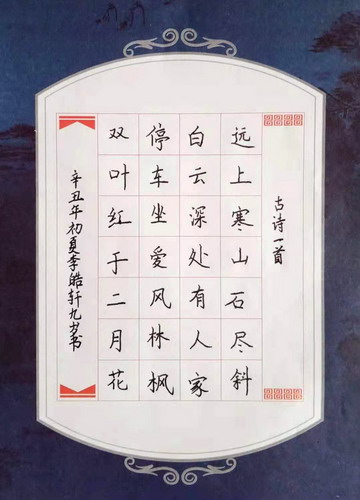 古诗一首
远上寒山石尽斜
白云深处有人家
停车坐爱风林枫
双叶红于二月花
辛丑年初夏李皓轩九岁书